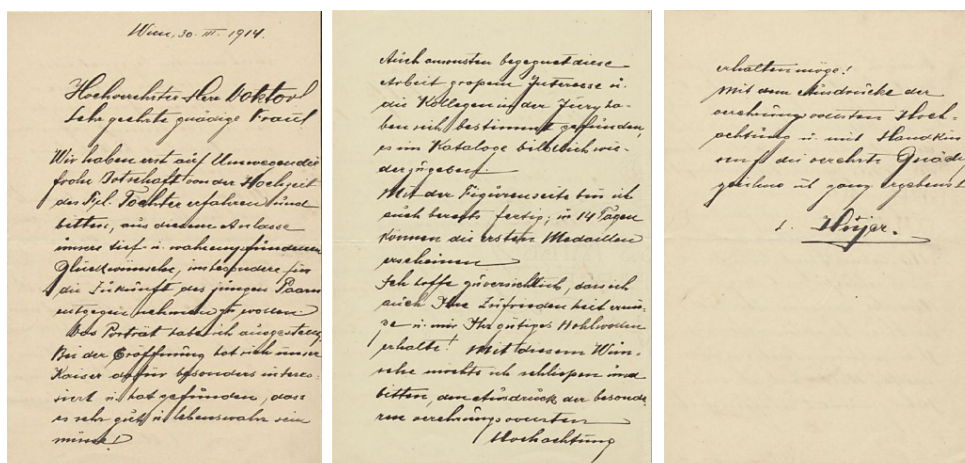 Wien, 30. III. 1914.
Hochverehrter Herr Doktor!
Sehr geehrte gnädige Frau!
Wir haben erst auf Umwegen die
frohe Botschaft von der Hochzeit
des Frl. Tochter erfahren und
bitten, aus diesem Anlasse
unsere tief u. wahr empfundenen
Glückwünsche, insbesondere für
die Zukunft des jungen Paares
entgegen nehmen zu wollen
Das Porträt habe ich ausgestellt,
Bei der Eröffnung hat sich unser
Kaiser dafür besonders interes-
siert u. hat gefunden, dass
es sehr gut u. lebenswahr sein
müsse!
Auch ansonsten begegnet diese
Arbeit grossem Interesse u.
die Kollegen in der Jury ha-
ben sich bestimmt gefunden,
es im Kataloge bildlich wie-
derzugeben.
Mit der Figürenseite bin ich
auch bereits fertig; in 14 Tagen
können die ersten Medaillen
erscheinen
Ich hoffe zuversichtlich, dass ich
auch Ihre Zufriedenheit errin-
ge u. mir Ihr gütiges Wohlwollen
erhalte! Mit diesem Wun-
sche möchte ich schliessen und
bitten, den Ausdruck der besonde-
ren verehrungsvollsten
Hochachtung
erhalten möge!
Mit dem Ausdrucke der
verehrungsvollsten Hoch-
achtung u. mit Handkuss
an die verehrte Gnädige
zeichne ich ganz ergebenst
L. Hujer.